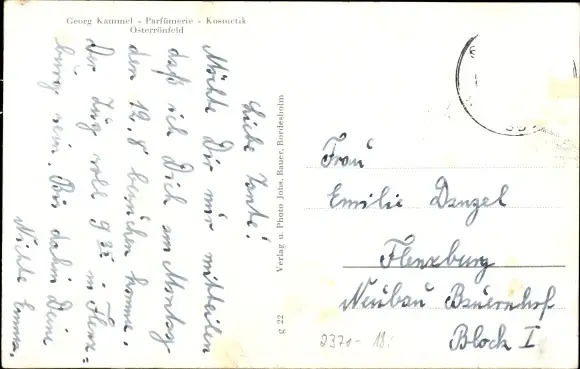 Georg Kammel - Parfümerie - Kosmetik
Osterrönfeld
Liebe Tante!
Möchte Dir nur mitteilen
daß ich Dich am Montag
den 12.8 besuchen komme.
Der Zug soll 9 35 in Flens=
burg sein. Bis dahin Deine
Nichte Emma.
Verlag u. Photo Johs. Bauer, Bordesholm
g 22
Frau
Emilie Danzel
Flensburg
Neubau Bauernhof
Block I
2371 - 18.